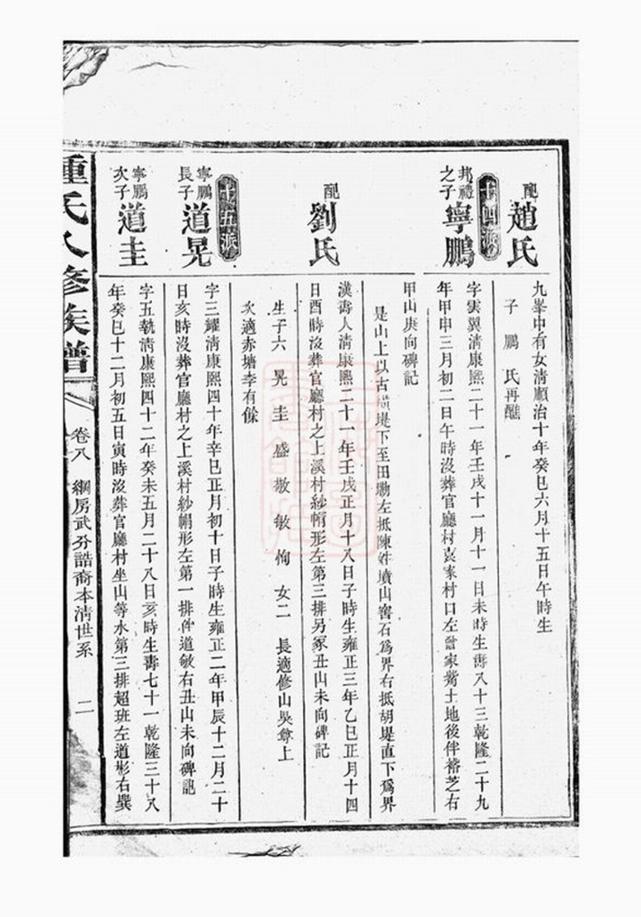 配趙氏
九峯中有女清順治十年癸巳六月十五日午時生
子 鵬 氏再醮
十四派
邦禮之子寧鵬
字雲翼清康熙二十一年壬戌十一月十一日未時生壽八十三乾隆二十九
年甲申三月初二日午時沒葬官廳村袁家村口左曾家嘴土地後伴 芝右
甲山庚向碑記
是山上以古橫堤下至田塝左抵陳姓墳山窖石爲界右抵胡堤直下爲界
配劉氏
漢壽人清康熙二十一年壬戌正月十八日子時生雍正三年乙巳正月十四
日酉時沒葬官廳村之上溪村紗帽形左第三排另冢丑山未向碑記
生子六 晃 圭 盛 敬 敏 恂 女二 長適修山吳尊上
次適赤塘李有餘
十五派
寧鵬長子道晃
字三耀清康熙四十年辛巳正月初十日子時生雍正二年甲辰十二月二十
日亥時沒葬官廳村之上溪村紗帽形左第一排伴道敏右丑山未向碑記
寧鵬次子道圭
字五執清康熙四十二年癸未五月二十八日亥時生壽七十一乾隆三十八
年癸巳十二月初五日寅時沒葬官廳村坐山等水第三排超班左道彤右巽
鍾氏八修族譜
卷八 綱房武芬誥裔本清世系 二